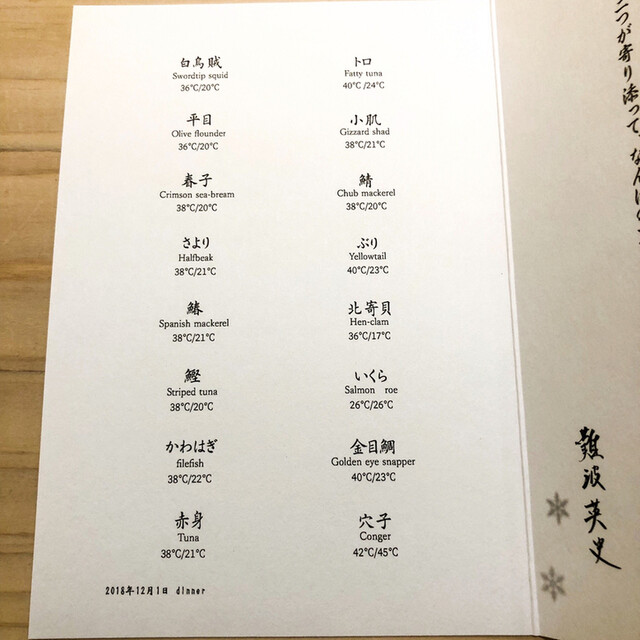 白烏賊
Swordtip squid
36℃/20℃
平目
Olive flounder
36℃/20℃
春子
Crimson sea-bream
38℃/20℃
さより
Halfbeak
38℃/21℃
鰆
Spanish mackerel
38℃/21℃
鰹
Striped tuna
38℃/20℃
かわはぎ
filefish
38℃/22℃
赤身
Tuna
38℃/21℃
トロ
Fatty tuna
40℃/24℃
小肌
Gizzard shad
38℃/21℃
鯖
Chub mackerel
38℃/20℃
ぶり
Yellowtail
40℃/23℃
北寄貝
Hen-clam
36℃/17℃
いくら
Salmon roe
26℃/26℃
金目鯛
Golden eye snapper
40℃/23℃
穴子
Conger
42℃/45℃
2018年12月1日 dinner
二つが寄り添って、なんに
難波英史